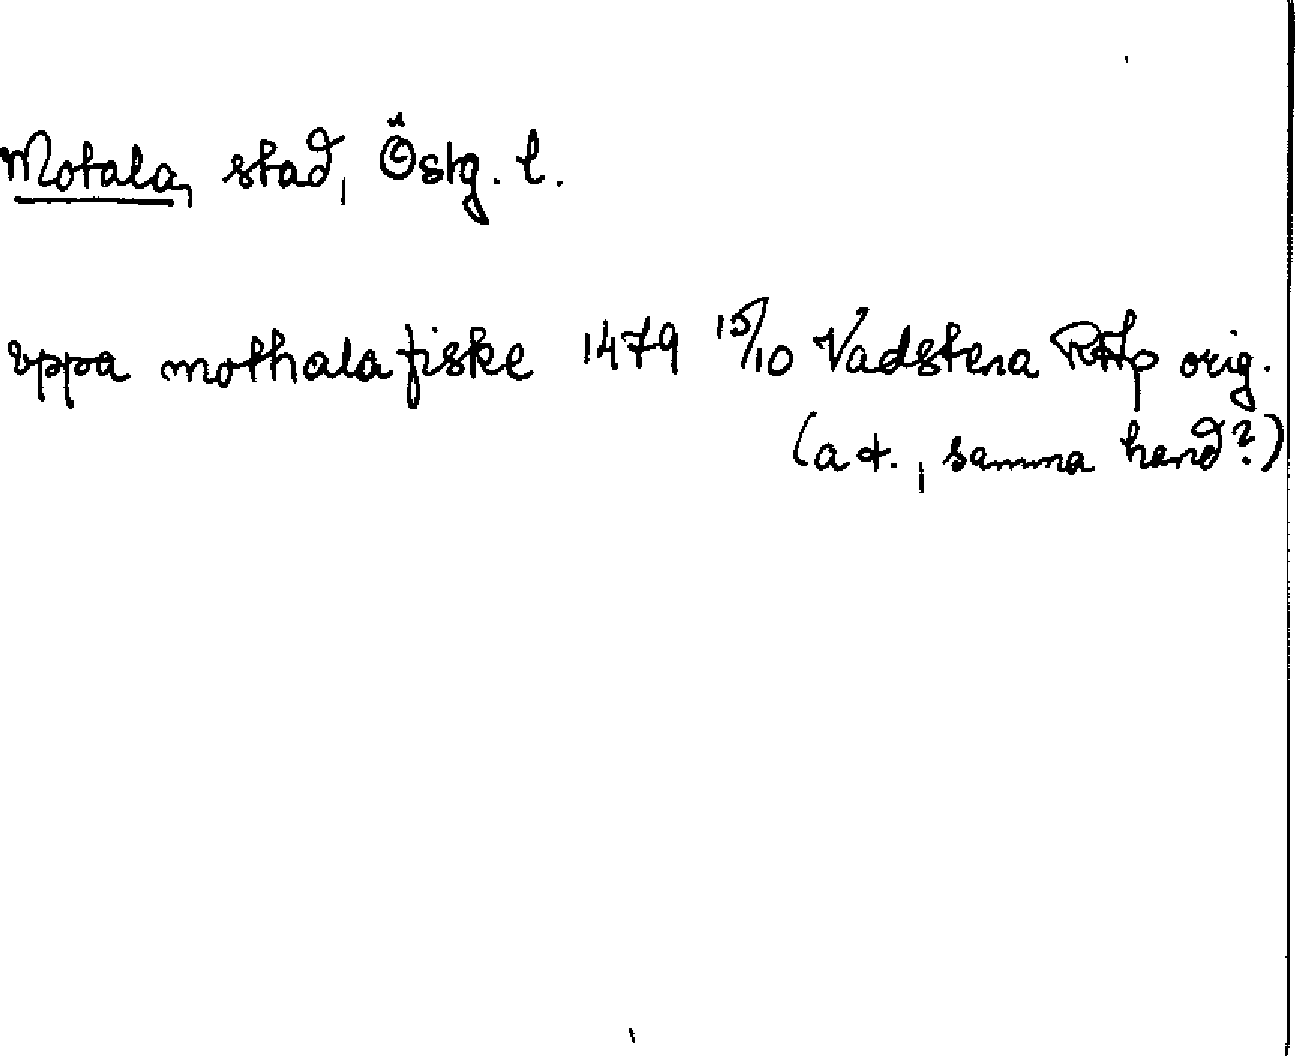 Motala, stad, Östg. l.
vppa mothala fiske 1479 15/10 Vadstena RAp orig.
(a t., samma hand?)